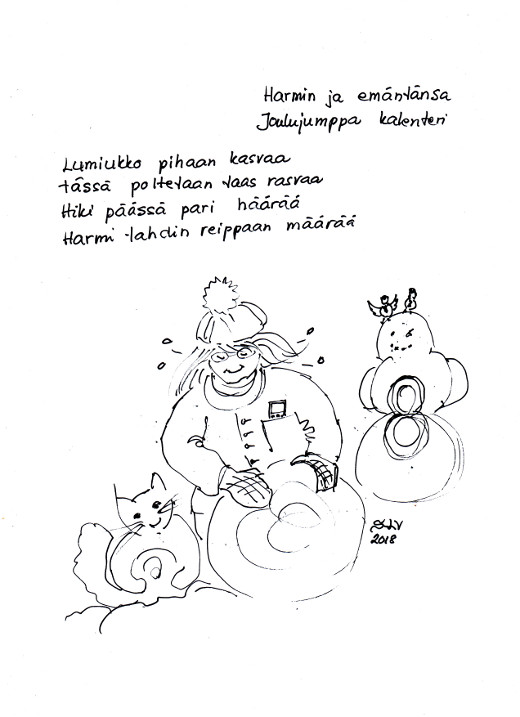 Harmin ja emäntänsä
Joulujumppa kalenteri
Lumiukko pihaan kasvaa
tässä poltetaan taas rasvaa
Hiki päässä pari häärää
Harmi tahdin reippaan määrää
2018